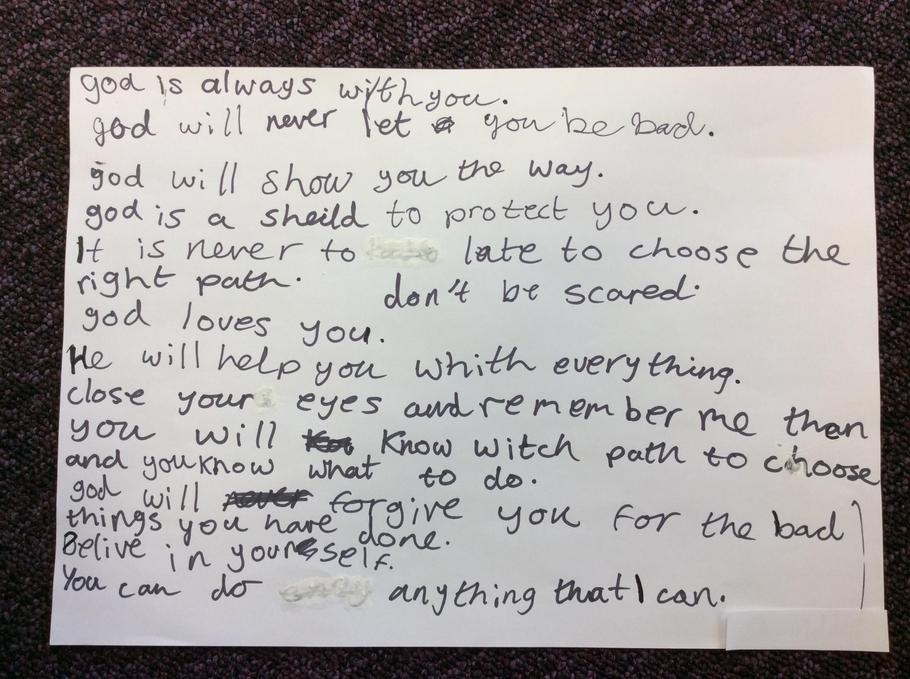 god is always with you.
god will never let you be bad.
god will show you the way.
god is a sheild to protect you.
It is never to late to choose the
right path. don't be scared.
god loves you.
He will help you whith everything.
close your eyes and remember me then
you will know witch path to choose
and you know what to do.
god will forgive you for the bad
things you have done.
Belive in yourself.
You can do anything that I can.